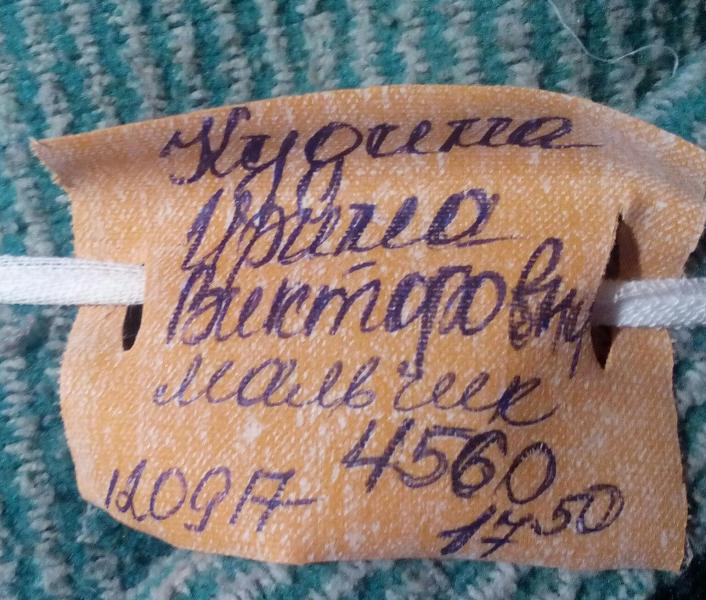 Кудина
Ирина
Викторовна
мальчик
4560
120917 17 50